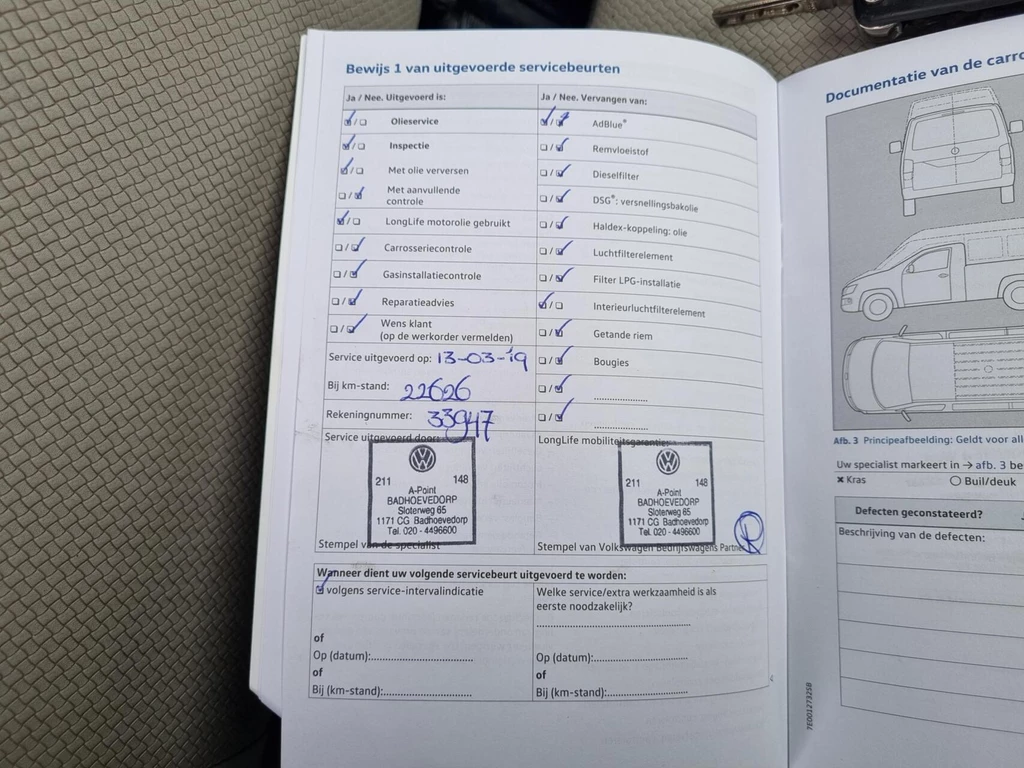 Bewijs 1 van uitgevoerde servicebeurten
Ja / Nee. Uitgevoerd is:
Olieservice
Inspectie
Met olie verversen
Met aanvullende
controle
LongLife motorolie gebruikt
Carrosseriecontrole
Gasinstallatiecontrole
Reparatieadvies
Wens klant
(op de werkorder vermelden)
Service uitgevoerd op: 13-03-19
Bij km-stand: 22626
Rekeningnummer: 33947
Ja / Nee. Vervangen van:
AdBlue®
Remvloeistof
Dieselfilter
DSG®: versnellingsbakolie
Haldex-koppeling: olie
Luchtfilterelement
Filter LPG-installatie
Interieurluchtfilterelement
Getande riem
Bougies
Service uitgevoerd door:
211 148
A-Point
BADHOEVEDORP
Sloterweg 65
1171 CG Badhoevedorp
Tel. 020 - 4496600
Stempel van de specialist
LongLife mobiliteitsgarantie:
211 148
A-Point
BADHOEVEDORP
Sloterweg 65
1171 CG Badhoevedorp
Tel. 020 - 4496600
Stempel van Volkswagen Bedrijfswagens Partner
Wanneer dient uw volgende servicebeurt uitgevoerd te worden:
volgens service-intervalindicatie
of
Op (datum):
of
Bij (km-stand):
Welke service/extra werkzaamheid is als
eerste noodzakelijk?
Op (datum):
of
Bij (km-stand):
7E0012732SB
Documentatie van de carro
Afb. 3 Principeafbeelding: Geldt voor all
Uw specialist markeert in → afb. 3 be
✖ Kras
Buil/deuk
Defecten geconstateerd?
Beschrijving van de defecten: